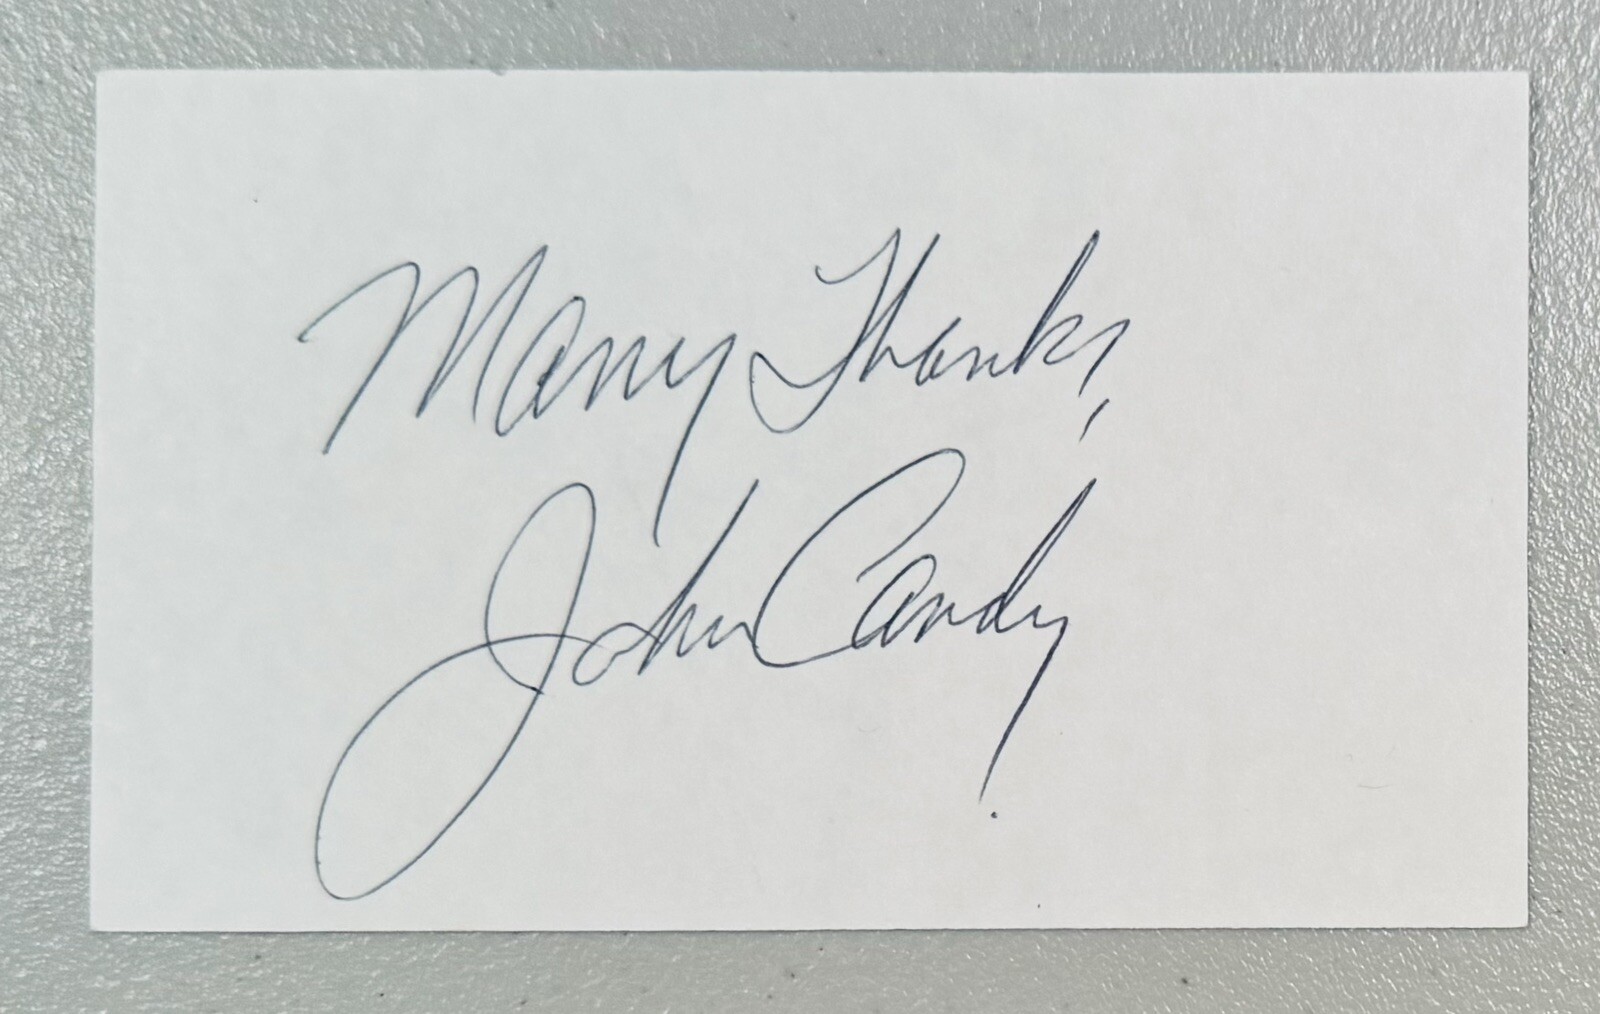 Many Thanks,
John Candy